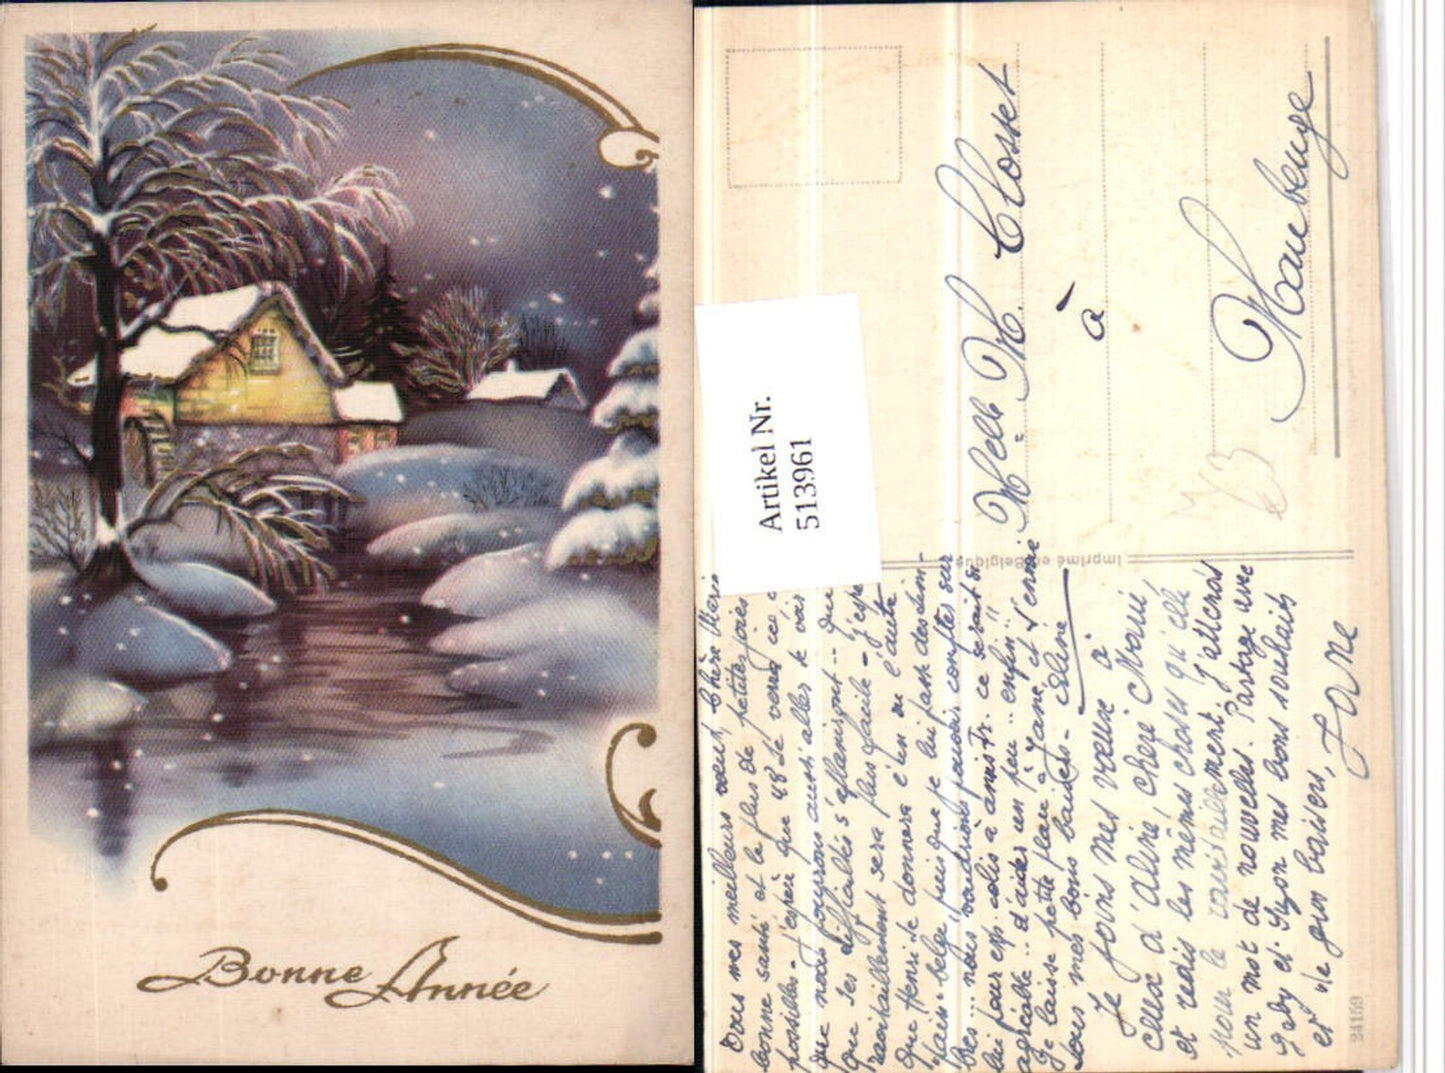 Bonne Année
Artikel Nr.
513961
Imprimé en Belgique
Melle M. Closset
à
Maubeuge
Tous mes meilleurs vœux, chère Marie
bonne santé et le plus de petites joies
possibles - J'espère que 48 te verra ici
que nous pourrons aussi aller te voir
que les difficultés s'aplaniront .. Que
le ravitaillement sera plus facile - J'espère
que Henri te donnera l'un ou l'autre
"bain" belge, puisque je lui fais des
.. nous voudrions pouvoir compter sur
lui pour exp. colis à amis Fr. ce serait si
agréable .. d'aider un peu .. enfin!!
Je laisse petite place à Jane et t'envoie
tous mes bons baisers - Aline
Je joins mes vœux à
ceux d'Aline, chère Mami
et redis les mêmes choses qu'elle
pour le ravitaillement, J'attends
un mot de nouvelles. Partage avec
Gaby et mes bons souhaits
et de gros baisers,
Jane
24159